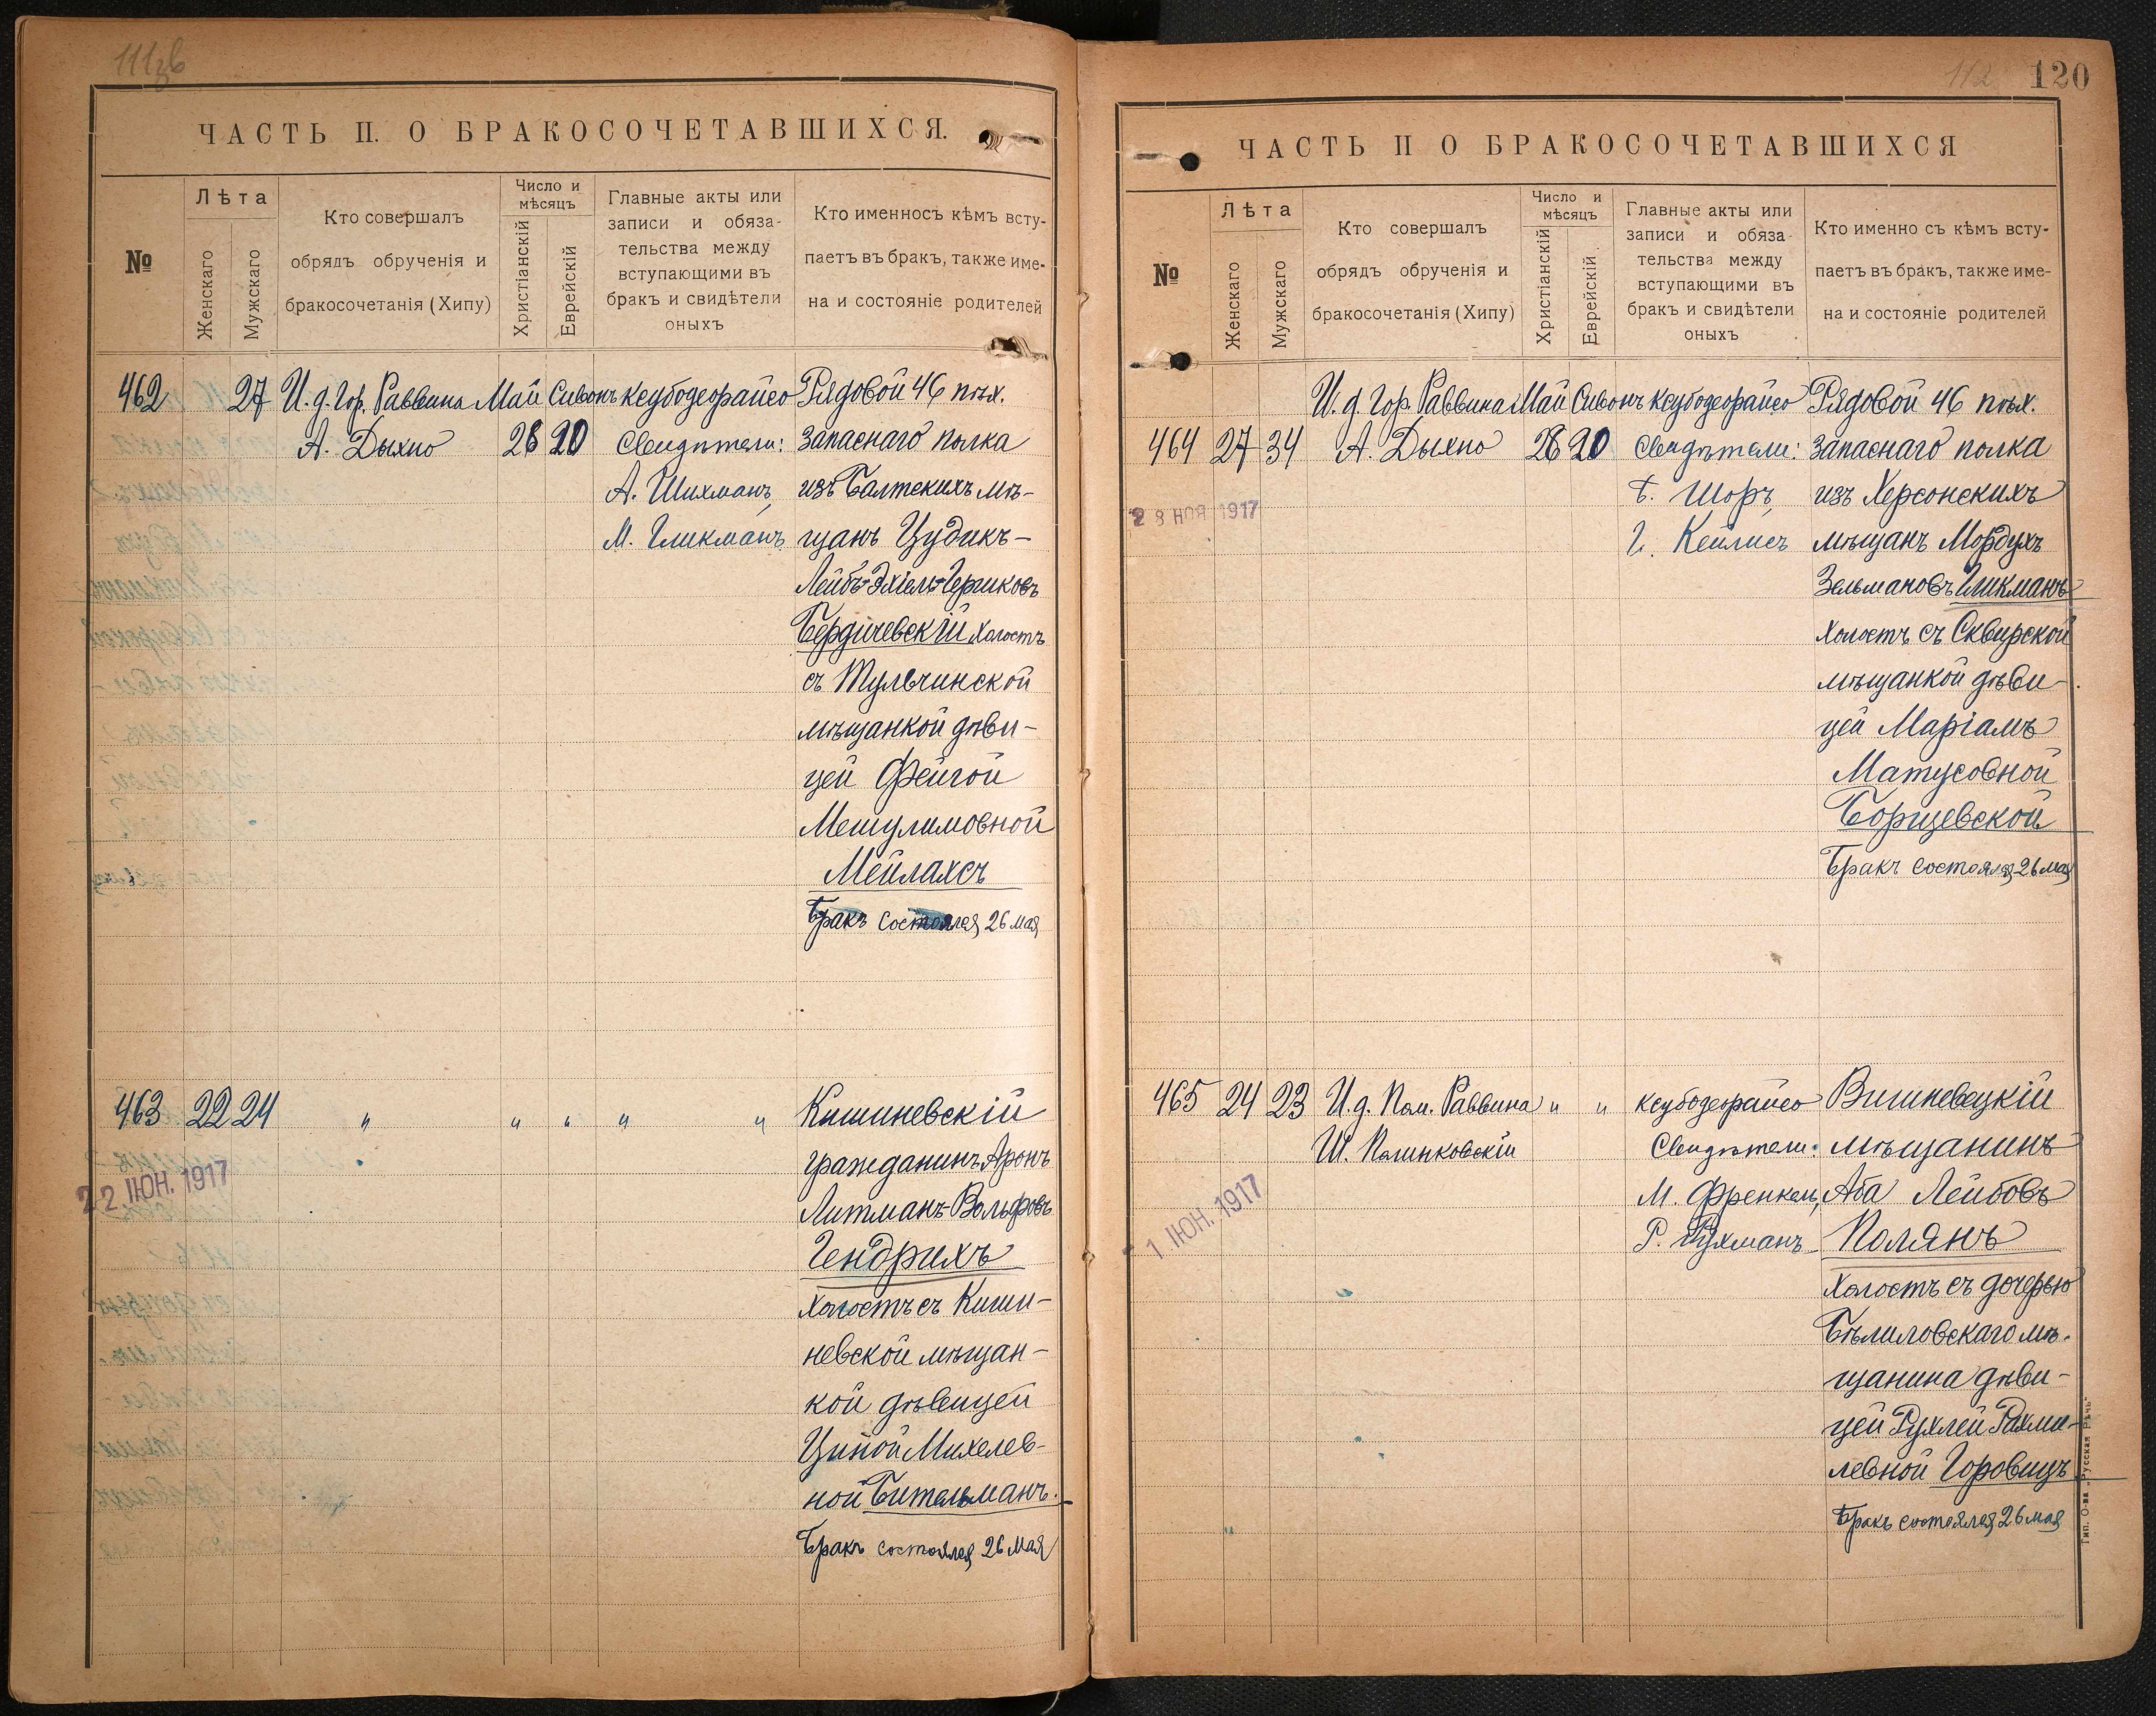 111 об
ЧАСТЬ II. О БРАКОСОЧЕТАВШИХСЯ.
№
Лѣта
Женскаго
Мужскаго
Кто совершалъ
обрядъ обрученія и
бракосочетанія (Хипу)
Число и
мѣсяцъ
Христіанскій
Еврейскій
Главные акты или
записи и обяза-
тельства между
вступающими въ
бракъ и свидѣтели
оныхъ
Кто именносъ кѣмъ всту-
паетъ въ бракъ, также име-
на и состояніе родителей
462 27 И. д. Гор. Раввина Май Сивонъ Ксубодеорайсо Рядовой 46 пѣх.
А. Дыхно 26 20 Свидѣтели: запаснаго полка
А. Шихманъ, изъ Балтскихъ мѣ-
М. Гликманъ щанъ Цудикъ-
Лейбъ-Эхіель-Гершковъ
Бердичевскій холостъ
съ Тульчинской
мѣщанкой дѣви-
цей Фейгой
Мешулимовной
Мейлахсъ
Бракъ состоялся 26 мая
463 22 24 " " " " " Кишиневскій
гражданинъ Аронъ
22 ІЮН. 1917
Литманъ-Вольфовъ
Гендрихъ
холостъ съ Киши-
невской мѣщан-
кой дѣвицей
Ципой Михелев-
ной Бительманъ.
Бракъ состоялся 26 мая
112 120
ЧАСТЬ II О БРАКОСОЧЕТАВШИХСЯ
№
Лѣта
Женскаго
Мужскаго
Кто совершалъ
обрядъ обрученія и
бракосочетанія (Хипу)
Число и
мѣсяцъ
Христіанскій
Еврейскій
Главные акты или
записи и обяза-
тельства между
вступающими въ
бракъ и свидѣтели
оныхъ
Кто именно съ кѣмъ всту-
паетъ въ бракъ, также име-
на и состояніе родителей
И. д. Гор. Раввина Май Сивонъ Ксубодеорайсо Рядовой 46 пѣх.
464 27 34 А. Дыхно 26 20 Свидѣтели: запаснаго полка
Б. Шоръ, изъ Херсонскихъ
28 НОЯ 1917
Г. Кейлисъ мѣщанъ Мордухъ
Зельмановъ Гликманъ
холостъ съ Сквирской
мѣщанкой дѣви-
цей Маріамъ
Матусовной
Борщевской
Бракъ состоялся 26 мая
465 24 23 И. д. Пом. Раввина " " Ксубодеорайсо Вишневецкій
Ш. Полинковскій Свидѣтели: мѣщанинъ
М. Френкель, Аба Лейбовъ
1 ІЮН. 1917
Р. Рухманъ Полянъ
холостъ съ дочерью
Бѣлиловскаго мѣ-
щанина дѣви-
цей Рухлей Рахми-
левной Горовицъ
Бракъ состоялся 26 мая
Тип. О-ва „Русская Рѣчь"